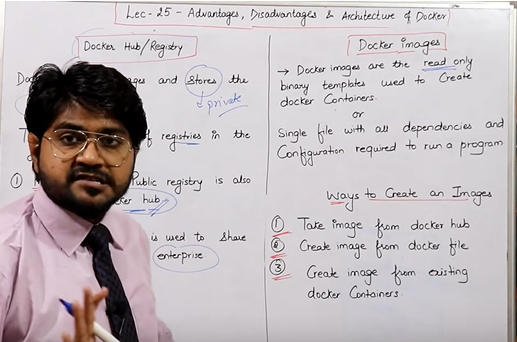 Lec-25 - Advantages, Disadvantages & Architecture of Docker
Docker Hub/Registry
ages and Stores the
private
of registries in the
① Public registry is also
hub
is used to share
enterprise
Docker images
→ Docker images are the read only
binary templates used to Create
docker Containers.
or
Single file with all dependencies and
Configuration required to run a program
Ways to Create an Images
① Take image from docker hub
② Create image from docker file
③ Create image from existing
docker Containers.